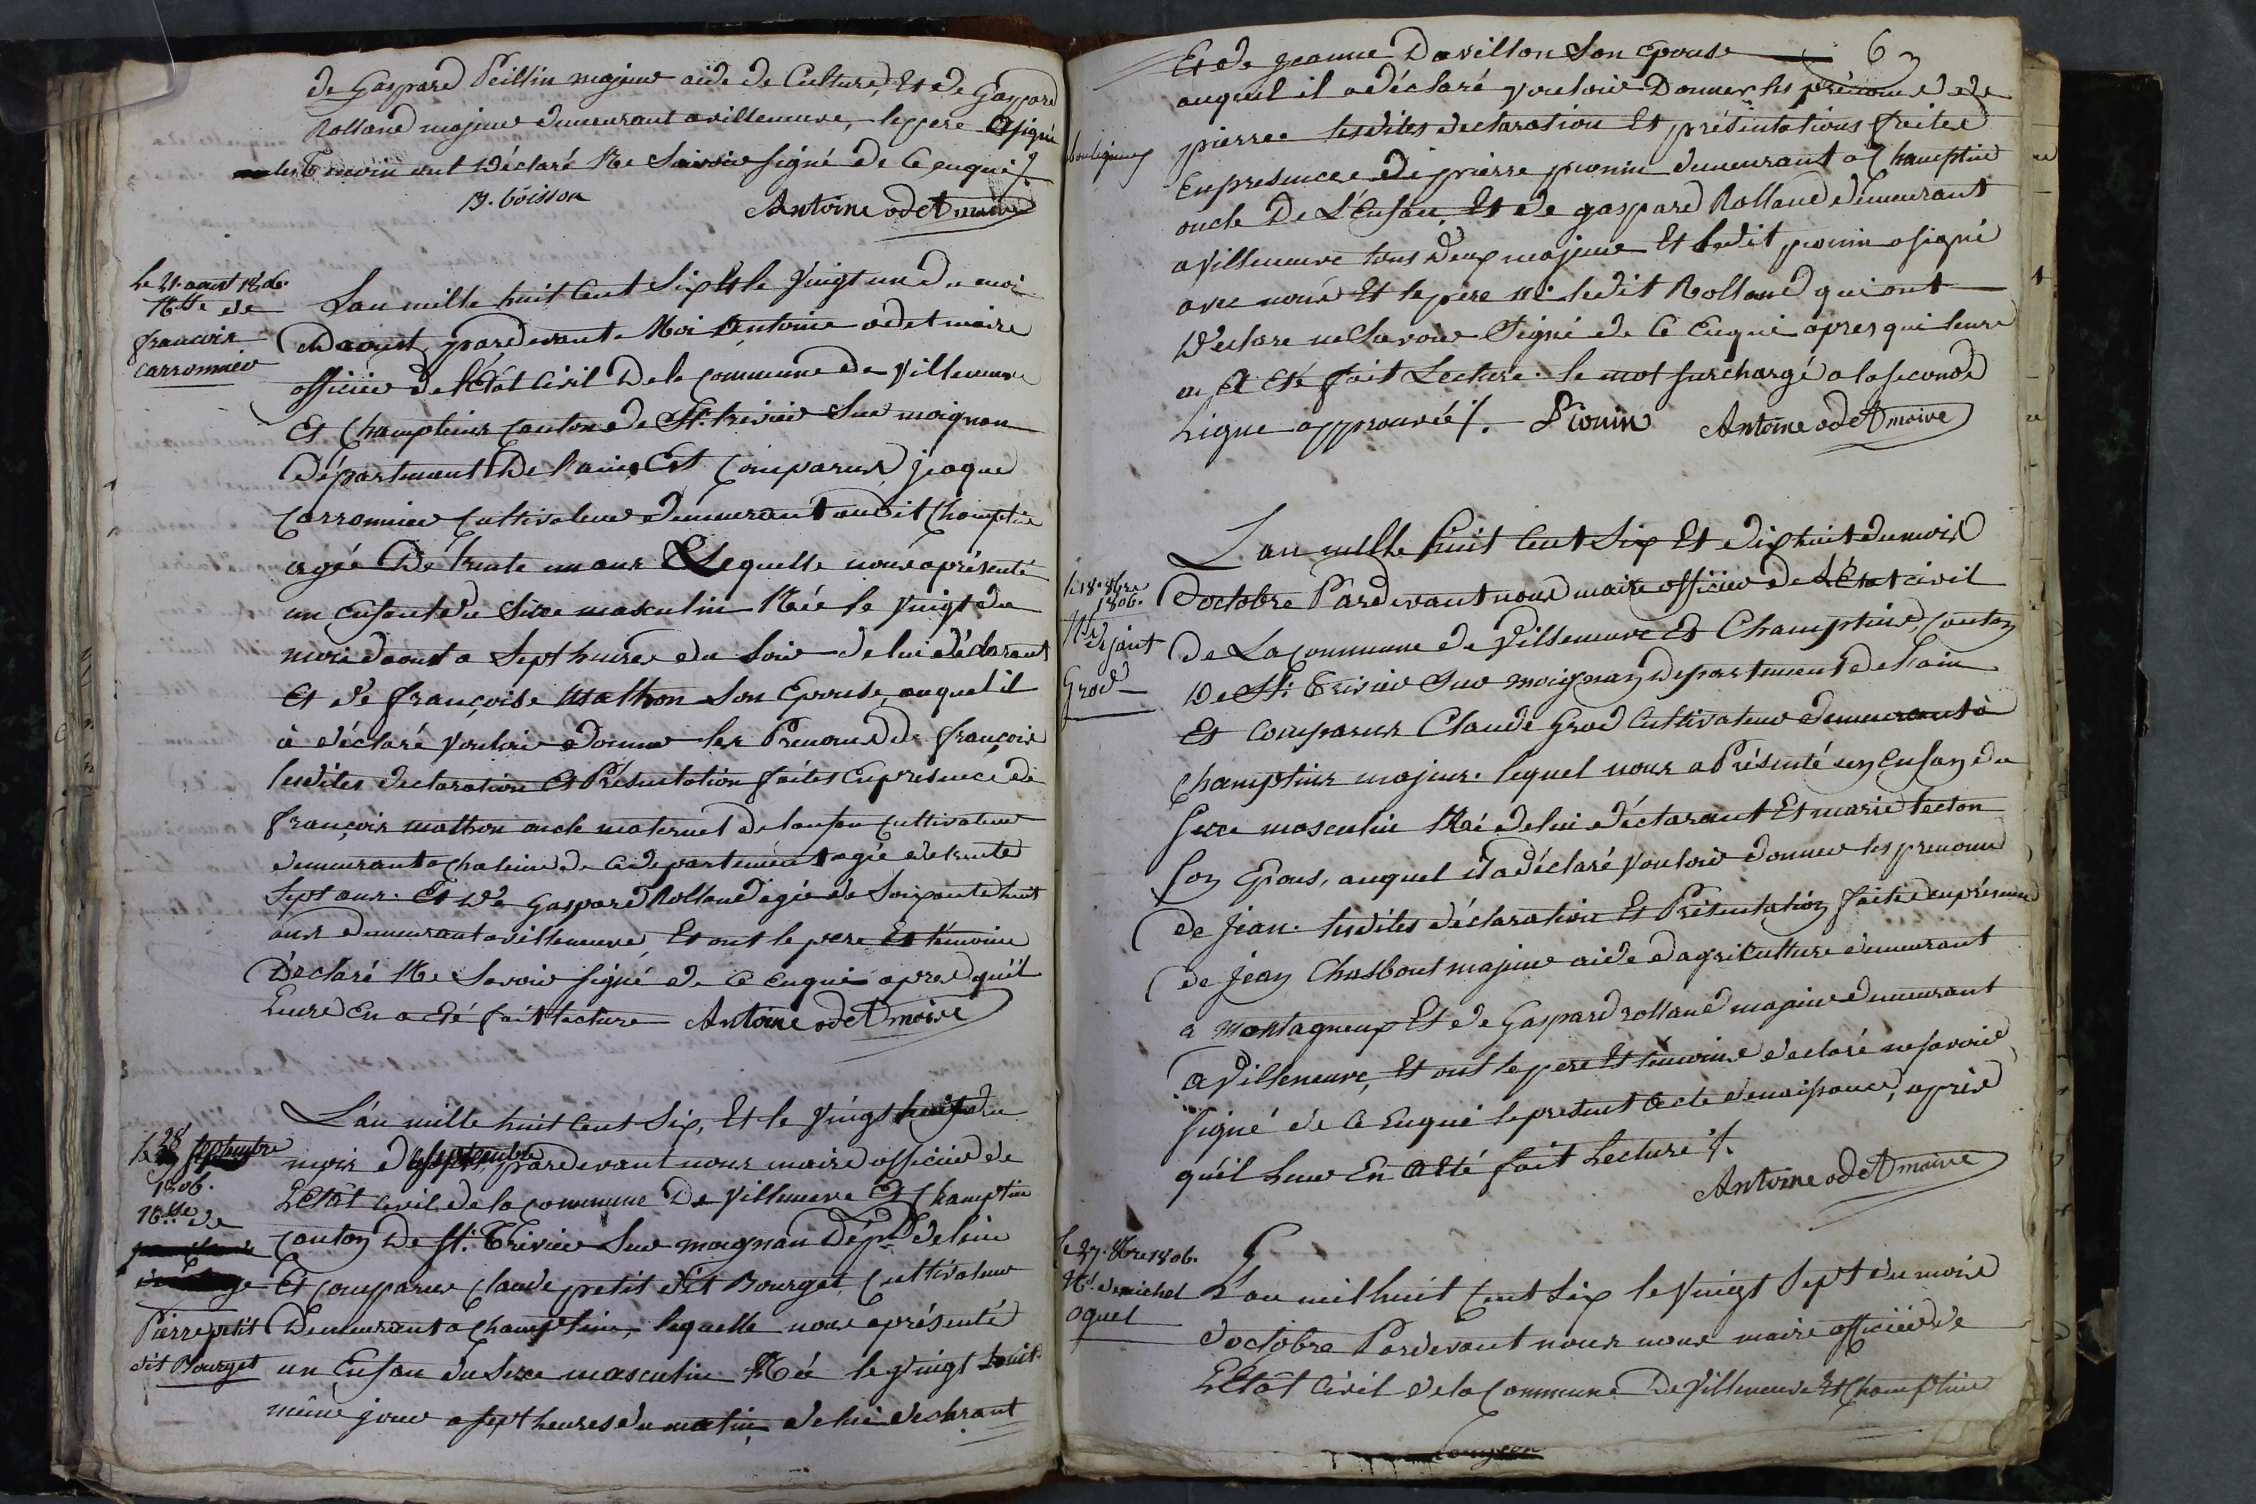 de Gaspard Peillin majeur aide de Culture, Et de Gaspard
Rolland majeur demeurant a villeneuve, le pere a signé
les temoin ont Déclaré Ne Savoir signé de Ce enquis /.
B. boisson Antoine odet maire
Le 21. aoust 1806.
N.ce de
françois
Carronnier
Lan mille huit Cent Six et le Vingt un du moi
Daoust, pardevant Moi Antoine odet maire
officier de l'Etât Civil De la Commune De Villeneuve
Et Champteins Canton de St. trivier Sur moignan
Département De l'ain, Est Comparus jcaque
Carronnier Cultivateur demeurant audit Champtin
agée De trente un ans Lequelle nous a présenté
un enfant du Sixe masculin Née le Vingt du
mois daoust a Sept heures du Soir de lui déclarant
Et de françoise Mathon Son Epouse, auquel il
à déclaré vouloir donner les Prenoms De françois
lesdites declaration Et Présentation faites En presence de
françois mathon oncle maternel de lenfan cultivateur
demeurant a Chaleins de ce departement agée de trente
Sept ans. Et de Gaspard Rolland agée de Soixante huit
ans demeurant a villeneuve, Et ont le pere Et temoins
Déclaré Ne Savoir signé de Ce enquis apres qu'il
Leurs En a été fait lecture Antoine odet maire
Le 28 septembre
1806.
N.ce de
Pierre petit
dit Bourget
L'an mille huit Cent Six, Et le Vingt huit du
mois de septembre pardevant nous maire officier de
L'Etât Civil, de la Commune De Villeneuve Et Champtin
Canton De St. Trivier Sur moignan Dép.t De lain
Est Comparus Claude petit dit Bourget Cultivateur
Demeurant a Champtins, lequelle nous a présenté
un Enfan du Sexe masculin Née le Vingt huit
même jour a sept heures du matin de lui déclarant
Et de jeanne Davillon Son Epouse 6
auquel il a déclaré vouloir Donner les prénoms de
pierre lesdites declaration Et présentations faites
En presence de pierre pronin demeurant a Champtins
oncle De L'Enfan, Et de gaspard Rolland demeurant
a Villeneuve tous deux majeur Et ledit pronin a signé
avec nous Et le pere ni ledit Rolland qui ont
Declare ne Savoir Signé de Ce Enquis apres qui leurs
en A Eté fait Lecture. le mot surchargé a la seconde
Ligne approuvée /. Pronin Antoine odet maire
Le 18. 8bre
1806.
N.ce de jean
Grod
L'an mille huit Cent Six Et dix huit du mois
Doctobre Pardevant nous maire officier de L'Etat civil
de La Commune de Villeneuve Et Champtins, Canton
De St. Trivier Sur moignan Departement de Lain
Et Comparus Claude Grod Cultivateur demeurant à
Champtins majeur. lequel nous a Présenté un Enfan du
Sexe masculin Né de lui déclarant Et marie tecton
Son Epous, auquel il a déclaré vouloir donner les prenoms
de jean. lesdites déclaration Et Présentation faite En présence
de jean Chasbout majeur aide dagriculture demeurant
a montagneux Et de Gaspard rolland majeur demeurant
A Villeneuve, Et ont le pere Et temoins declaré ne savoir
signé de Ce Enquis le present acte de naissance, après
qu'il Leur En A Eté fait Lecture /.
Antoine odet maire
Le 27. 8bre 1806.
N.ce de michel
oquel
L'an mil huit Cent Six le Vingt Sept du mois
doctobre Pardevant nous nous maire officier de
L'Etât Civil de la Commune De Villeneuve Et Champtins